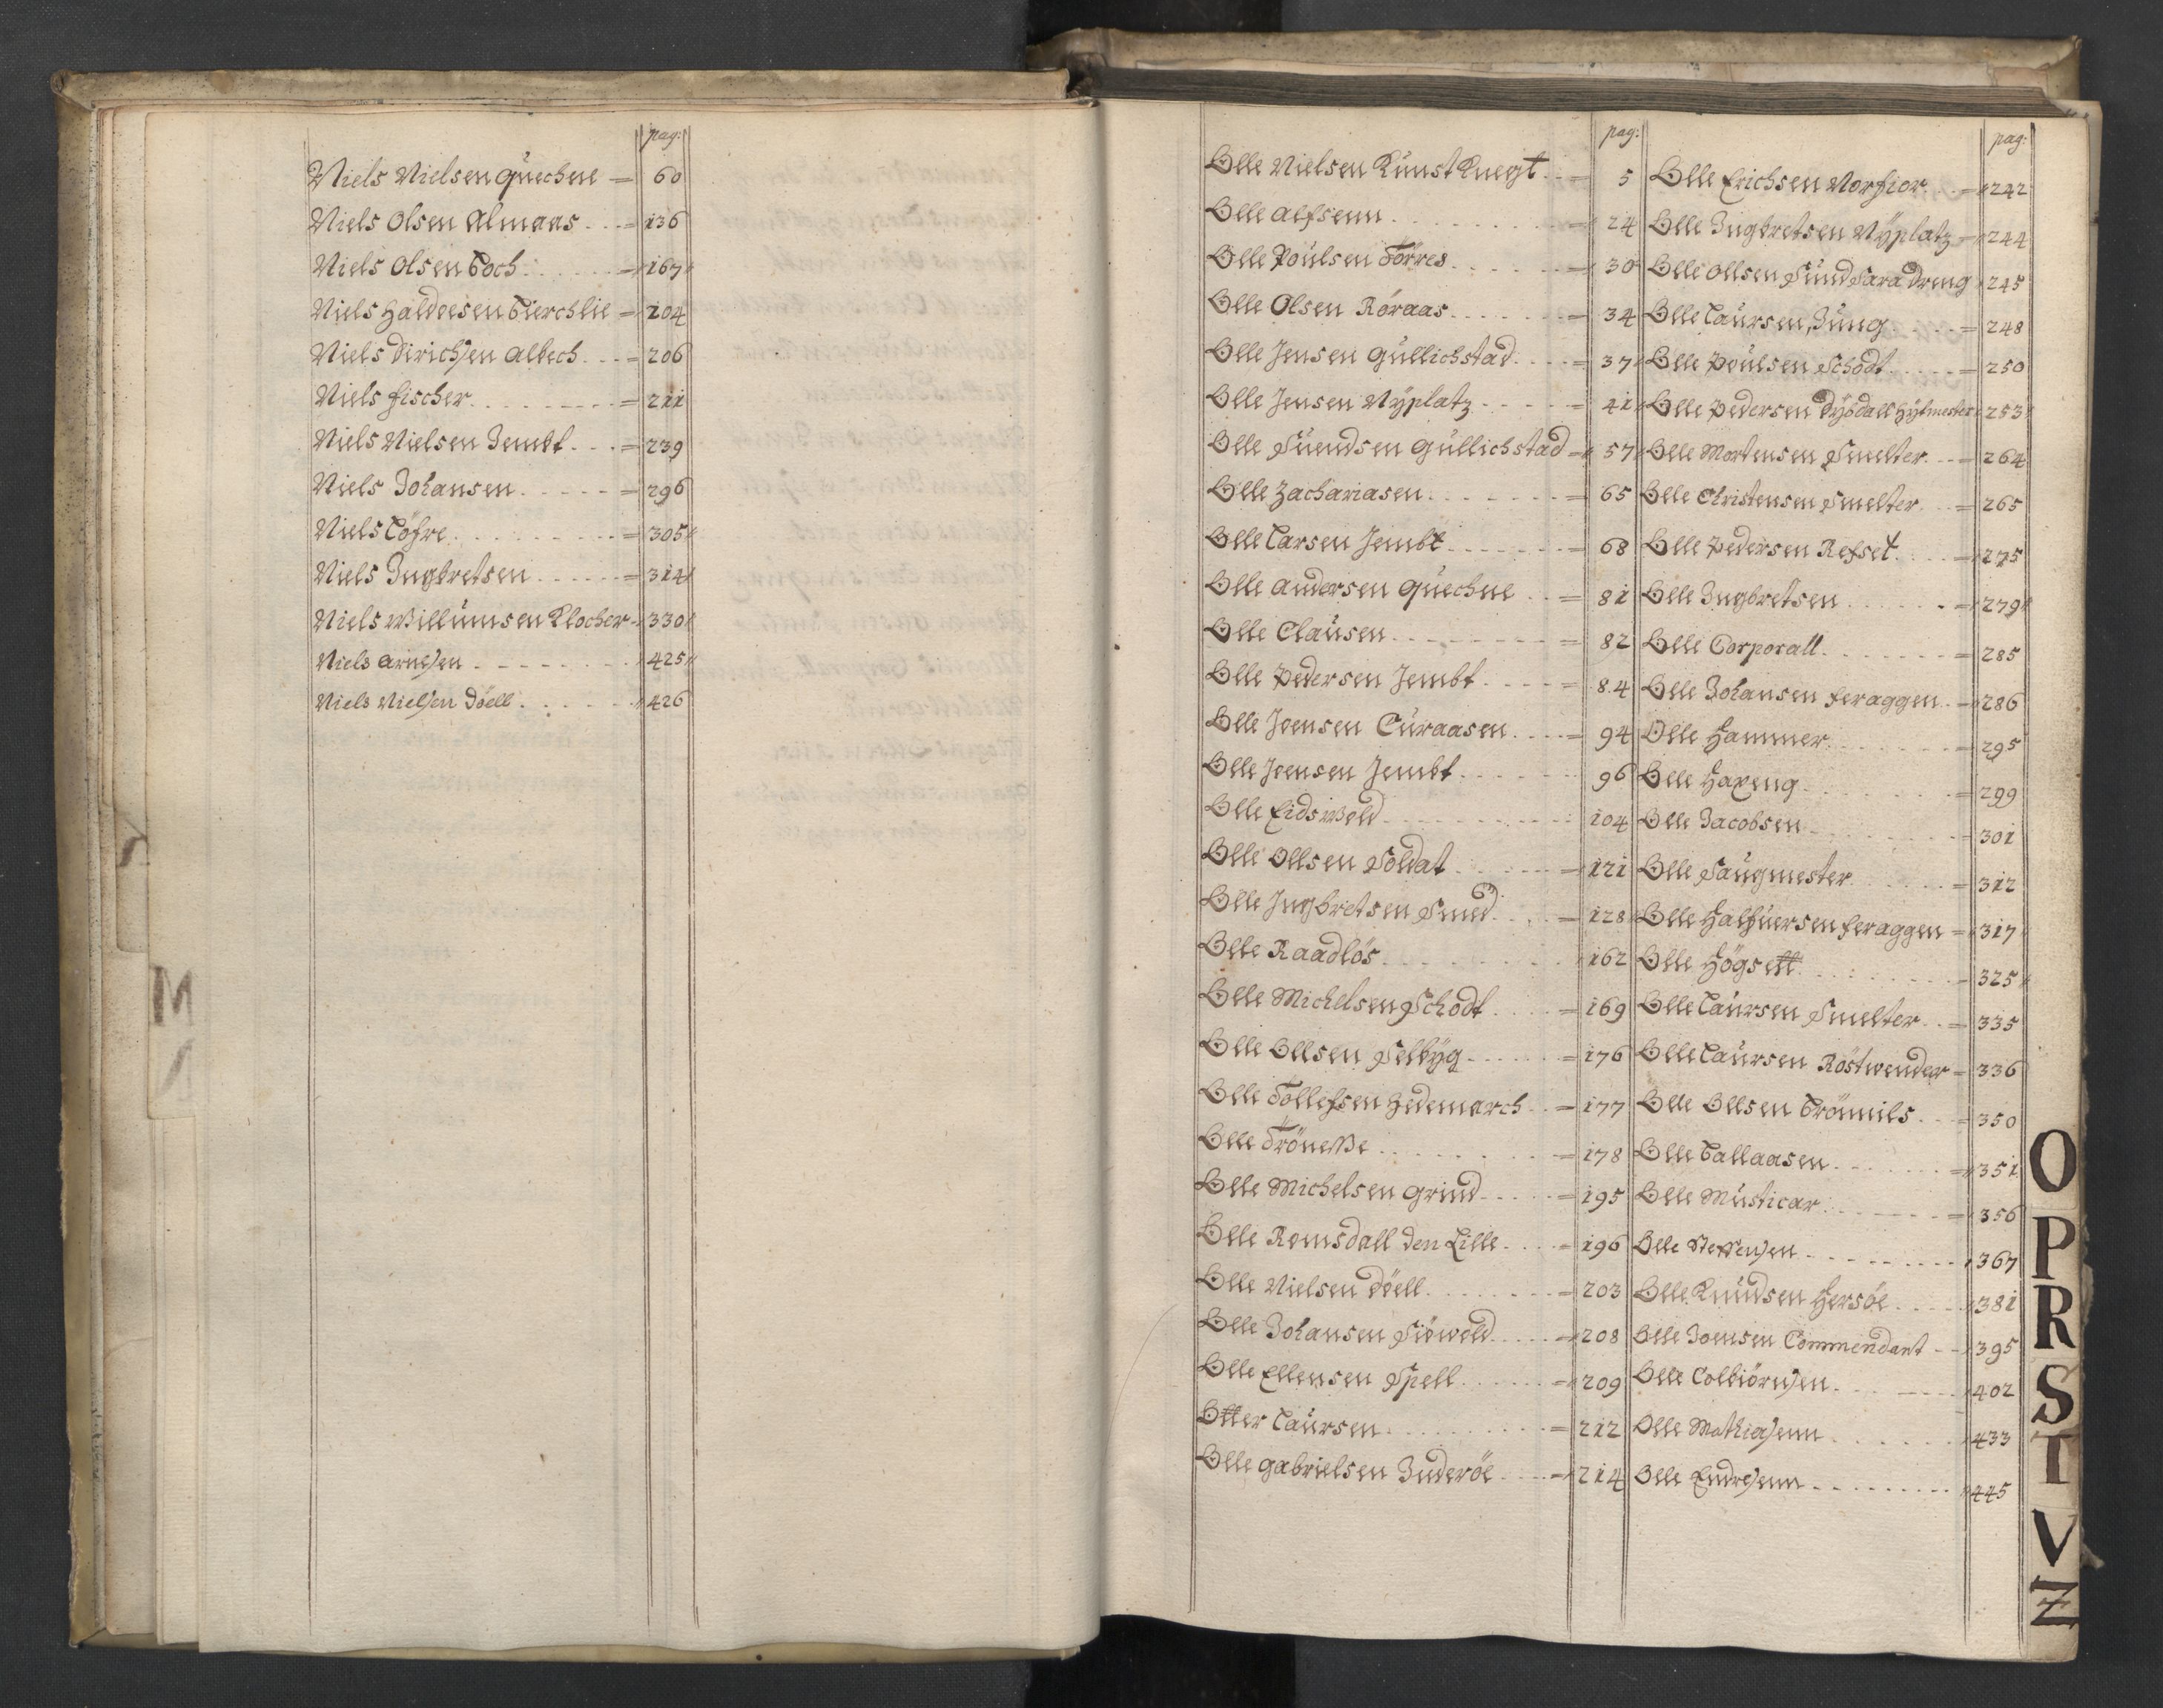 pag:
Niels Nielsen Quechne = 60
Niels Olsen Almaas . . . = 136
Niels Olsen Coch . . . . . = 167
Niels Haldoesen Bierchlie = 204
Niels Dirichsen Albech . . . = 206
Niels Fischer . . . . . . . . = 211
Niels Nielsen Jembt . . . = 239
Niels Johansen . . . . . = 296
Niels Cofre . . . . . . . . = 305
Niels Ingbretsen . . . . . = 314
Niels Willumsen Klocher = 330
Niels Arnesen . . . . . . . . 425
Niels Nielsen Döell . . . . . . 426
M
pag:
Olle Nielsen Kunst Knegt . . = 5
Olle Alfsenn . . . . . . . . = 24
Olle Poulsen Törres . . . . . = 30
Olle Olsen Röraas . . . . . . = 34
Olle Jensen Gullichstad . . . . = 37
Olle Jensen Nÿplatz . . . . . = 41
Olle Suendsen Gullichstad = 57
Olle Zachariasen . . . . . . = 65
Olle Larsen Jembt . . . . . . = 68
Olle Andersen Quechne . . = 81
Olle Clausen . . . . . . . . = 82
Olle Pedersen Jembt . . . . = 84
Olle Joensen Curaasen . . . . = 94
Olle Joensen Jembt . . . . . . 96
Olle Eidswold . . . . . . . . . 104
Olle Ollsen Soldat . . . . . = 121
Olle Ingbretsen Smed . . . = 128
Olle Raadlös . . . . . . . . . 162
Olle Michelsen Schodt . . . . = 169
Olle Ollsen Selbÿg . . . . . = 176
Olle Tollefsen Hedemarch . . = 177
Olle Tröneße . . . . . . . . = 178
Olle Michelsen Grind . . . . = 195
Olle Romsdall den Lille . . . = 196
Olle Nielsen Döell . . . . . . = 203
Olle Johansen Siöwold . . . . = 208
Olle Ellensen Spell . . . . . = 209
Otter Laursen . . . . . . . . = 212
Olle Gabrielsen Inderöe . . . = 214
pag:
Olle Erichsen Norfior . . = 242
Olle Ingbretsen Nÿplatz = 244
Olle Ollsen Sundsara Dreng 245
Olle Laursen Jung . . . . = 248
Olle Poulsen Schodt . . . . = 250
Olle Pedersen Dÿbdall Hÿtmester 253
Olle Mortensen Smelter . . = 264
Olle Christensen Smelter . . = 265
Olle Pedersen Refset . . . . = 275
Olle Ingbretsen . . . . . . = 279
Olle Corporall . . . . . . . = 285
Olle Johansen Feraggen . . = 286
Olle Hammer . . . . . . . = 295
Olle Hareng . . . . . . . . = 299
Olle Jacobsen . . . . . . . = 301
Olle Saugmester . . . . . . = 312
Olle Halfuersen Feraggen = 317
Olle Högsett . . . . . . . . = 325
Olle Laursen Smelter . . = 335
Olle Laursen Röstwender = 336
Olle Ollsen Crömils . . . = 350
Olle Callaasen . . . . . . . = 351
Olle Musticar . . . . . . . = 356
Olle Steffensen . . . . . . . . 367
Olle Knudsen Hersöe . . . . 381
Olle Joensen Commendant . . 395
Olle Colbiörnsen . . . . . . . 402
Olle Mathiasenn . . . . . . . 433
Olle Endresenn . . . . . . . . 445
O
P
R
S
T
V
Z